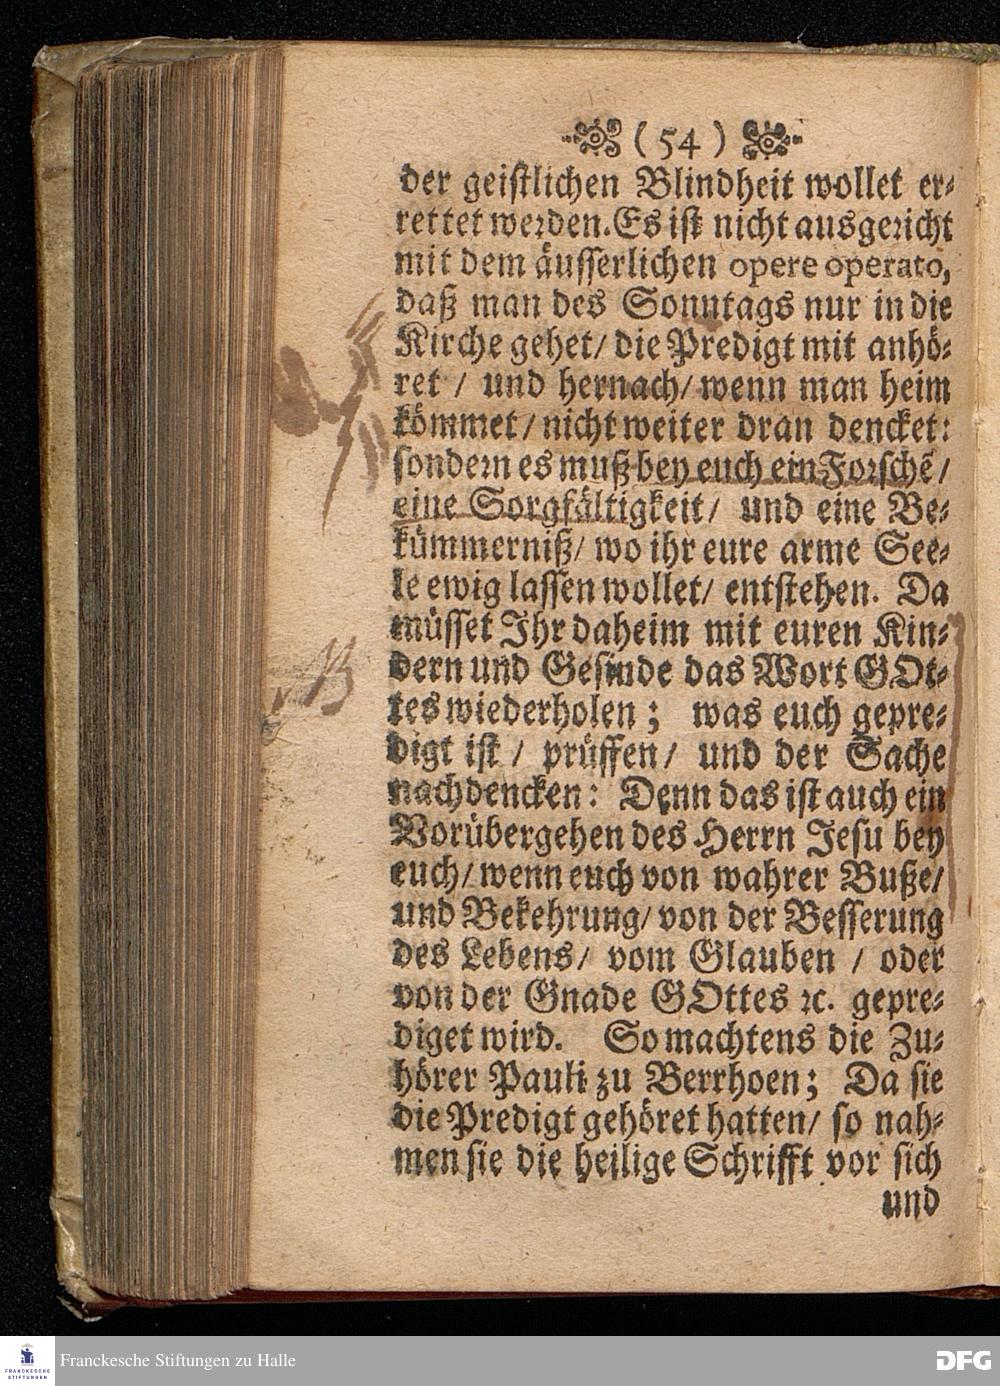 ( 54 )
der geistlichen Blindheit wollet er⸗
rettet werden. Es ist nicht ausgericht
mit dem äusserlichen opere operato,
daß man des Sonntags nur in die
Kirche gehet/ die Predigt mit anhö⸗
ret / und hernach/ wenn man heim
kömmet/ nicht weiter dran dencket:
sondern es muß bey euch ein Forschē/
eine Sorgfältigkeit/ und eine Be⸗
kümmerniß/ wo ihr eure arme See⸗
le ewig lassen wollet/ entstehen. Da
müsset Ihr daheim mit euren Kin⸗
dern und Gesinde das Wort GOt⸗
tes wiederholen; was euch gepre⸗
digt ist / prüffen/ und der Sache
nachdencken: Denn das ist auch ein
Vorübergehen des Herrn Jesu bey
euch/ wenn euch von wahrer Buße/
und Bekehrung/ von der Besserung
des Lebens/ vom Glauben / oder
von der Gnade GOttes ꝛc. gepre⸗
diget wird. So machtens die Zu⸗
hörer Pauli zu Berrhoen; Da sie
die Predigt gehöret hatten/ so nah⸗
men sie die heilige Schrifft vor sich
und
FRANCKESCHE STIFTUNGEN
Franckesche Stiftungen zu Halle
DFG